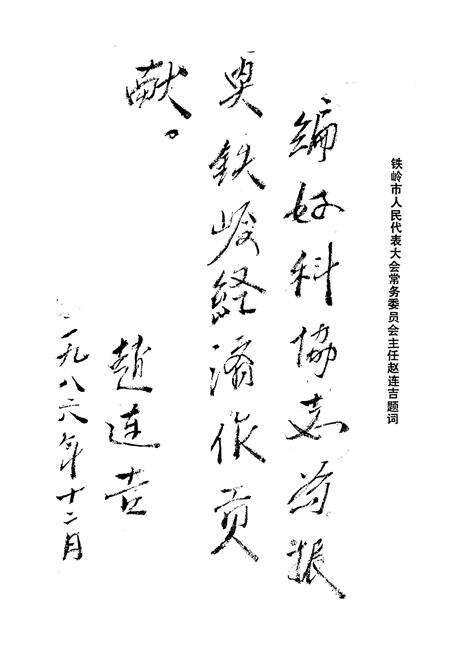 铁岭市人民代表大会常务委员会主任赵连吉题词
编好科協志为振
兴铁岭経济作贡
献。
趙連吉
一九八六年十二月